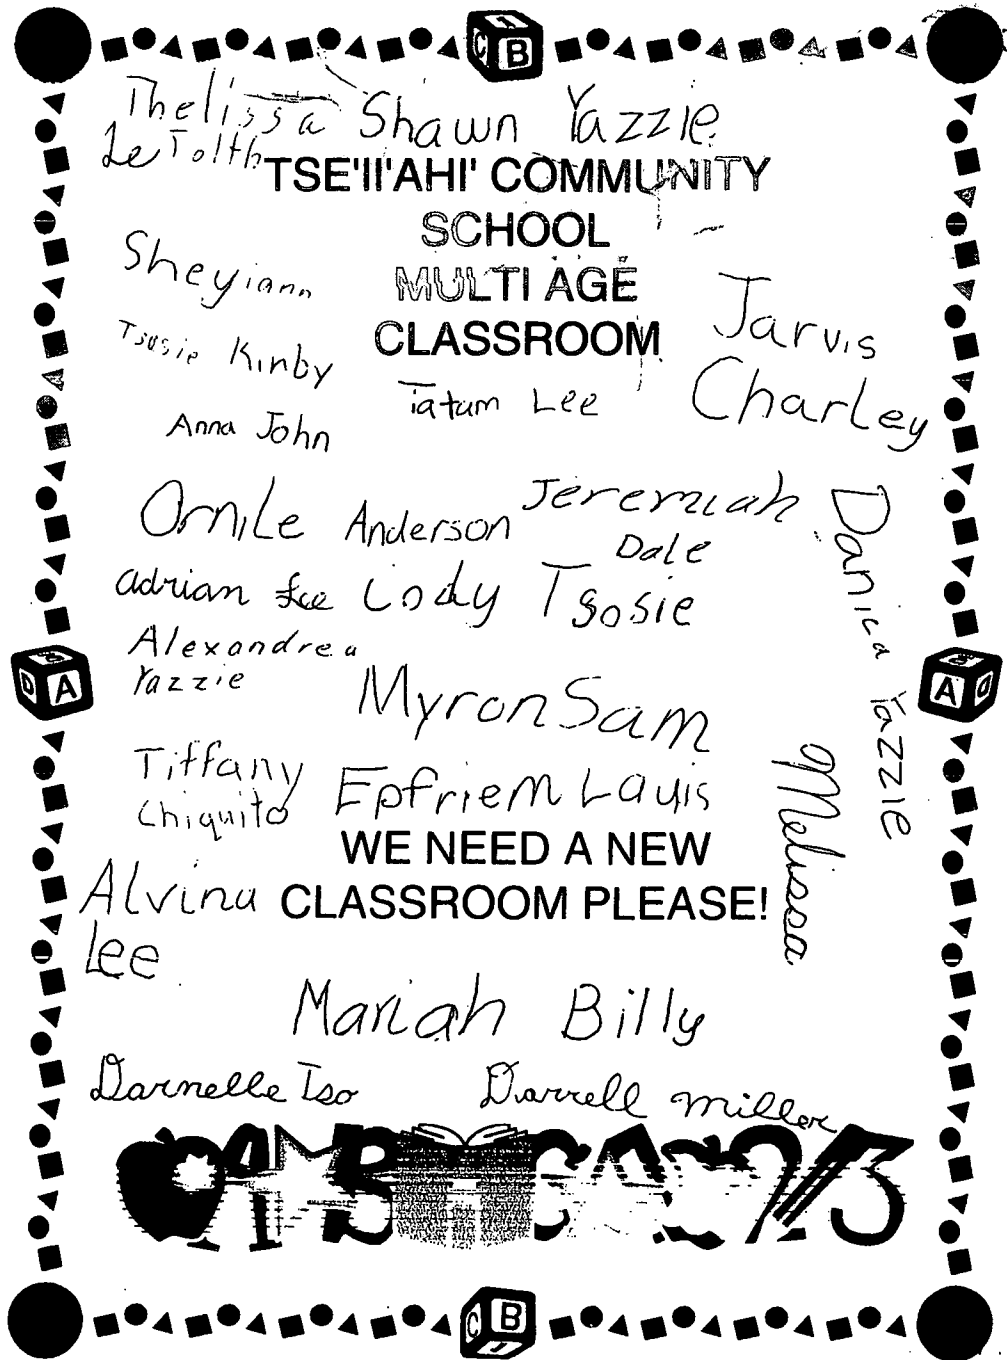 Thelissa Shawn Yazzie
LeTolth
TSE'II'AHI' COMMUNITY
SCHOOL
MULTI AGE
CLASSROOM
Sheyiann
Jarvis
Charley
Tsosie Kinby
Tatum Lee
Anna John
Ornile Anderson
Jeremiah
Dale
Danica Yazzie
adrian Lee Cody Tsosie
Alexandrea
Yazzie
Myron Sam
Tiffany
Chiquito
Epfriem Lauis
Melissa
WE NEED A NEW
CLASSROOM PLEASE!
Alvina
Lee
Mariah Billy
Darnelle Tso
Darrell Miller
A
B
C
D A
A D
C B